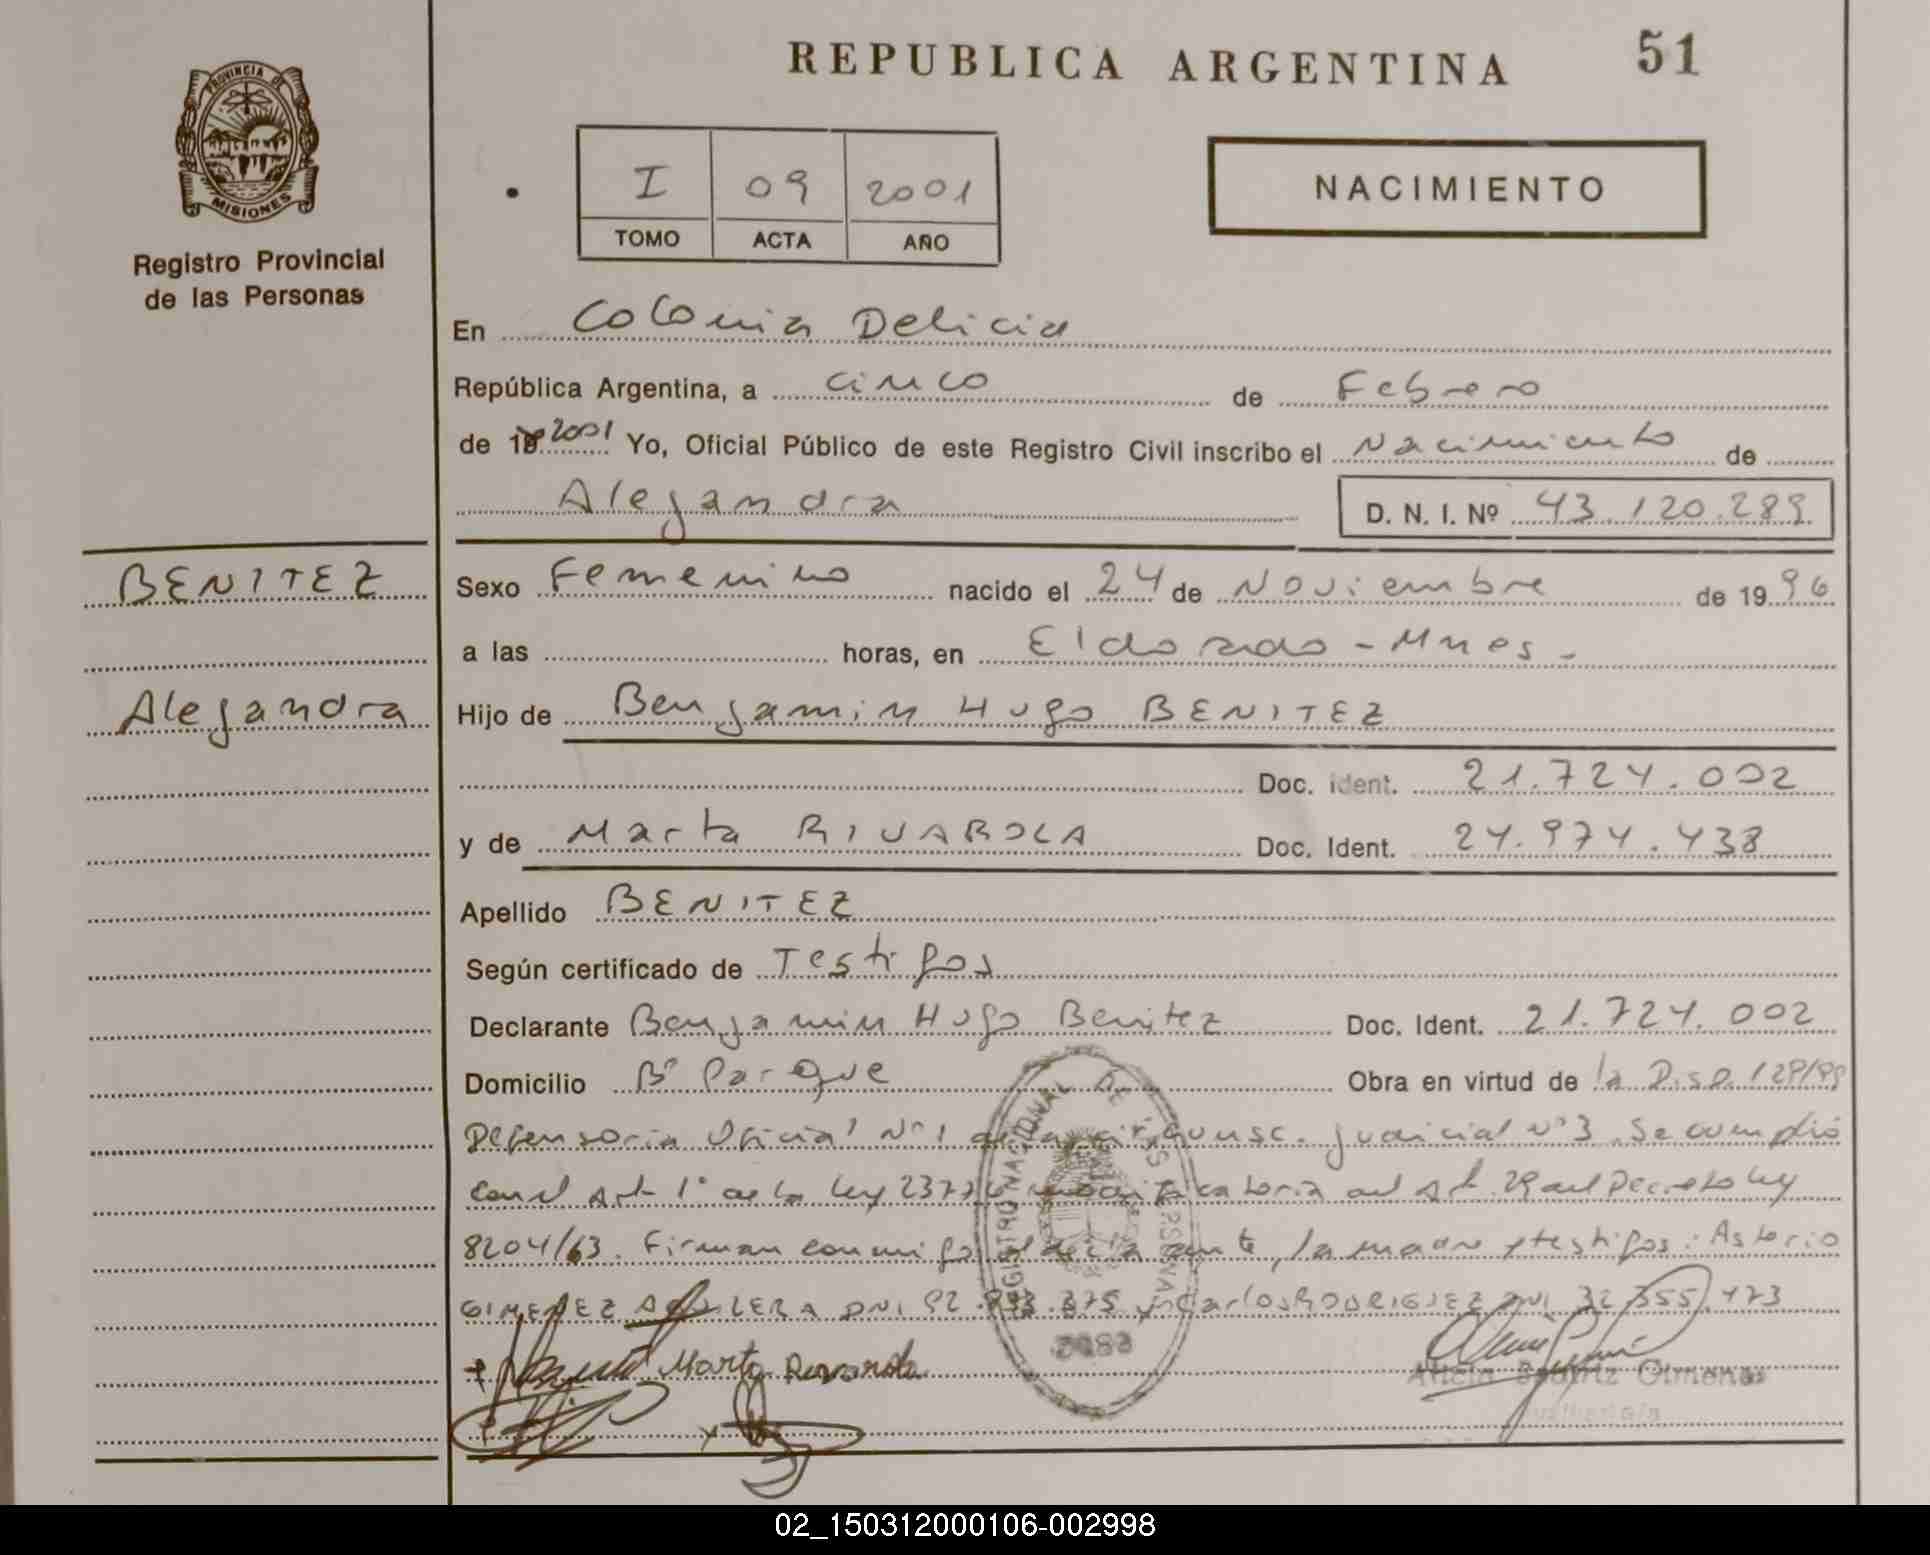 REPUBLICA ARGENTINA
51
PROVINCIA DE
MISIONES
Registro Provincial
de las Personas
I 09 2001
TOMO ACTA AÑO
NACIMIENTO
En Colonia Delicia
República Argentina, a cinco de Febrero
de 19 2001 Yo, Oficial Público de este Registro Civil inscribo el Nacimiento de
Alejandra D. N. I. Nº 43.120.289
BENITEZ
Alejandra
Sexo Femenino nacido el 24 de Noviembre de 1996
a las horas, en Eldorado - Mnes.-
Hijo de Benjamin Hugo BENITEZ
Doc. ident. 21.724.002
y de Marta RIVAROLA Doc. Ident. 24.974.438
Apellido BENITEZ
Según certificado de Testigos
Declarante Benjamin Hugo Benitez Doc. Ident. 21.724.002
Domicilio Bº Parque Obra en virtud de la Disp. 128/99
Defensoria Oficial Nº 1 de la circunsc. judicial nº 3. Se cumplió
con el Art 1° de la ley 23776 modificatoria del Art. 29 del Decreto ley
8204/63. Firman conmigo el declarante, la madre y testigos: Astorio
GIMENEZ AGUILERA DNI 92. .375 y Carlos RODRIGUEZ DNI 32.355.473
Marta Rivarola
REGISTRO NACIONAL DE LAS PERSONAS
Alicia Beatriz Gimenez
02_150312000106-002998